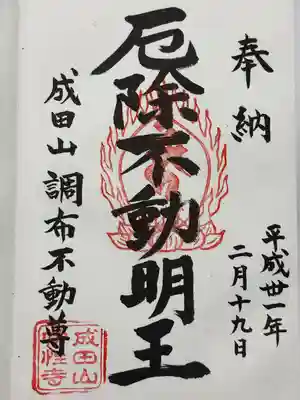 奉納
平成卅一年
二月十九日
厄除不動明王
成田山 調布不動尊
成田山